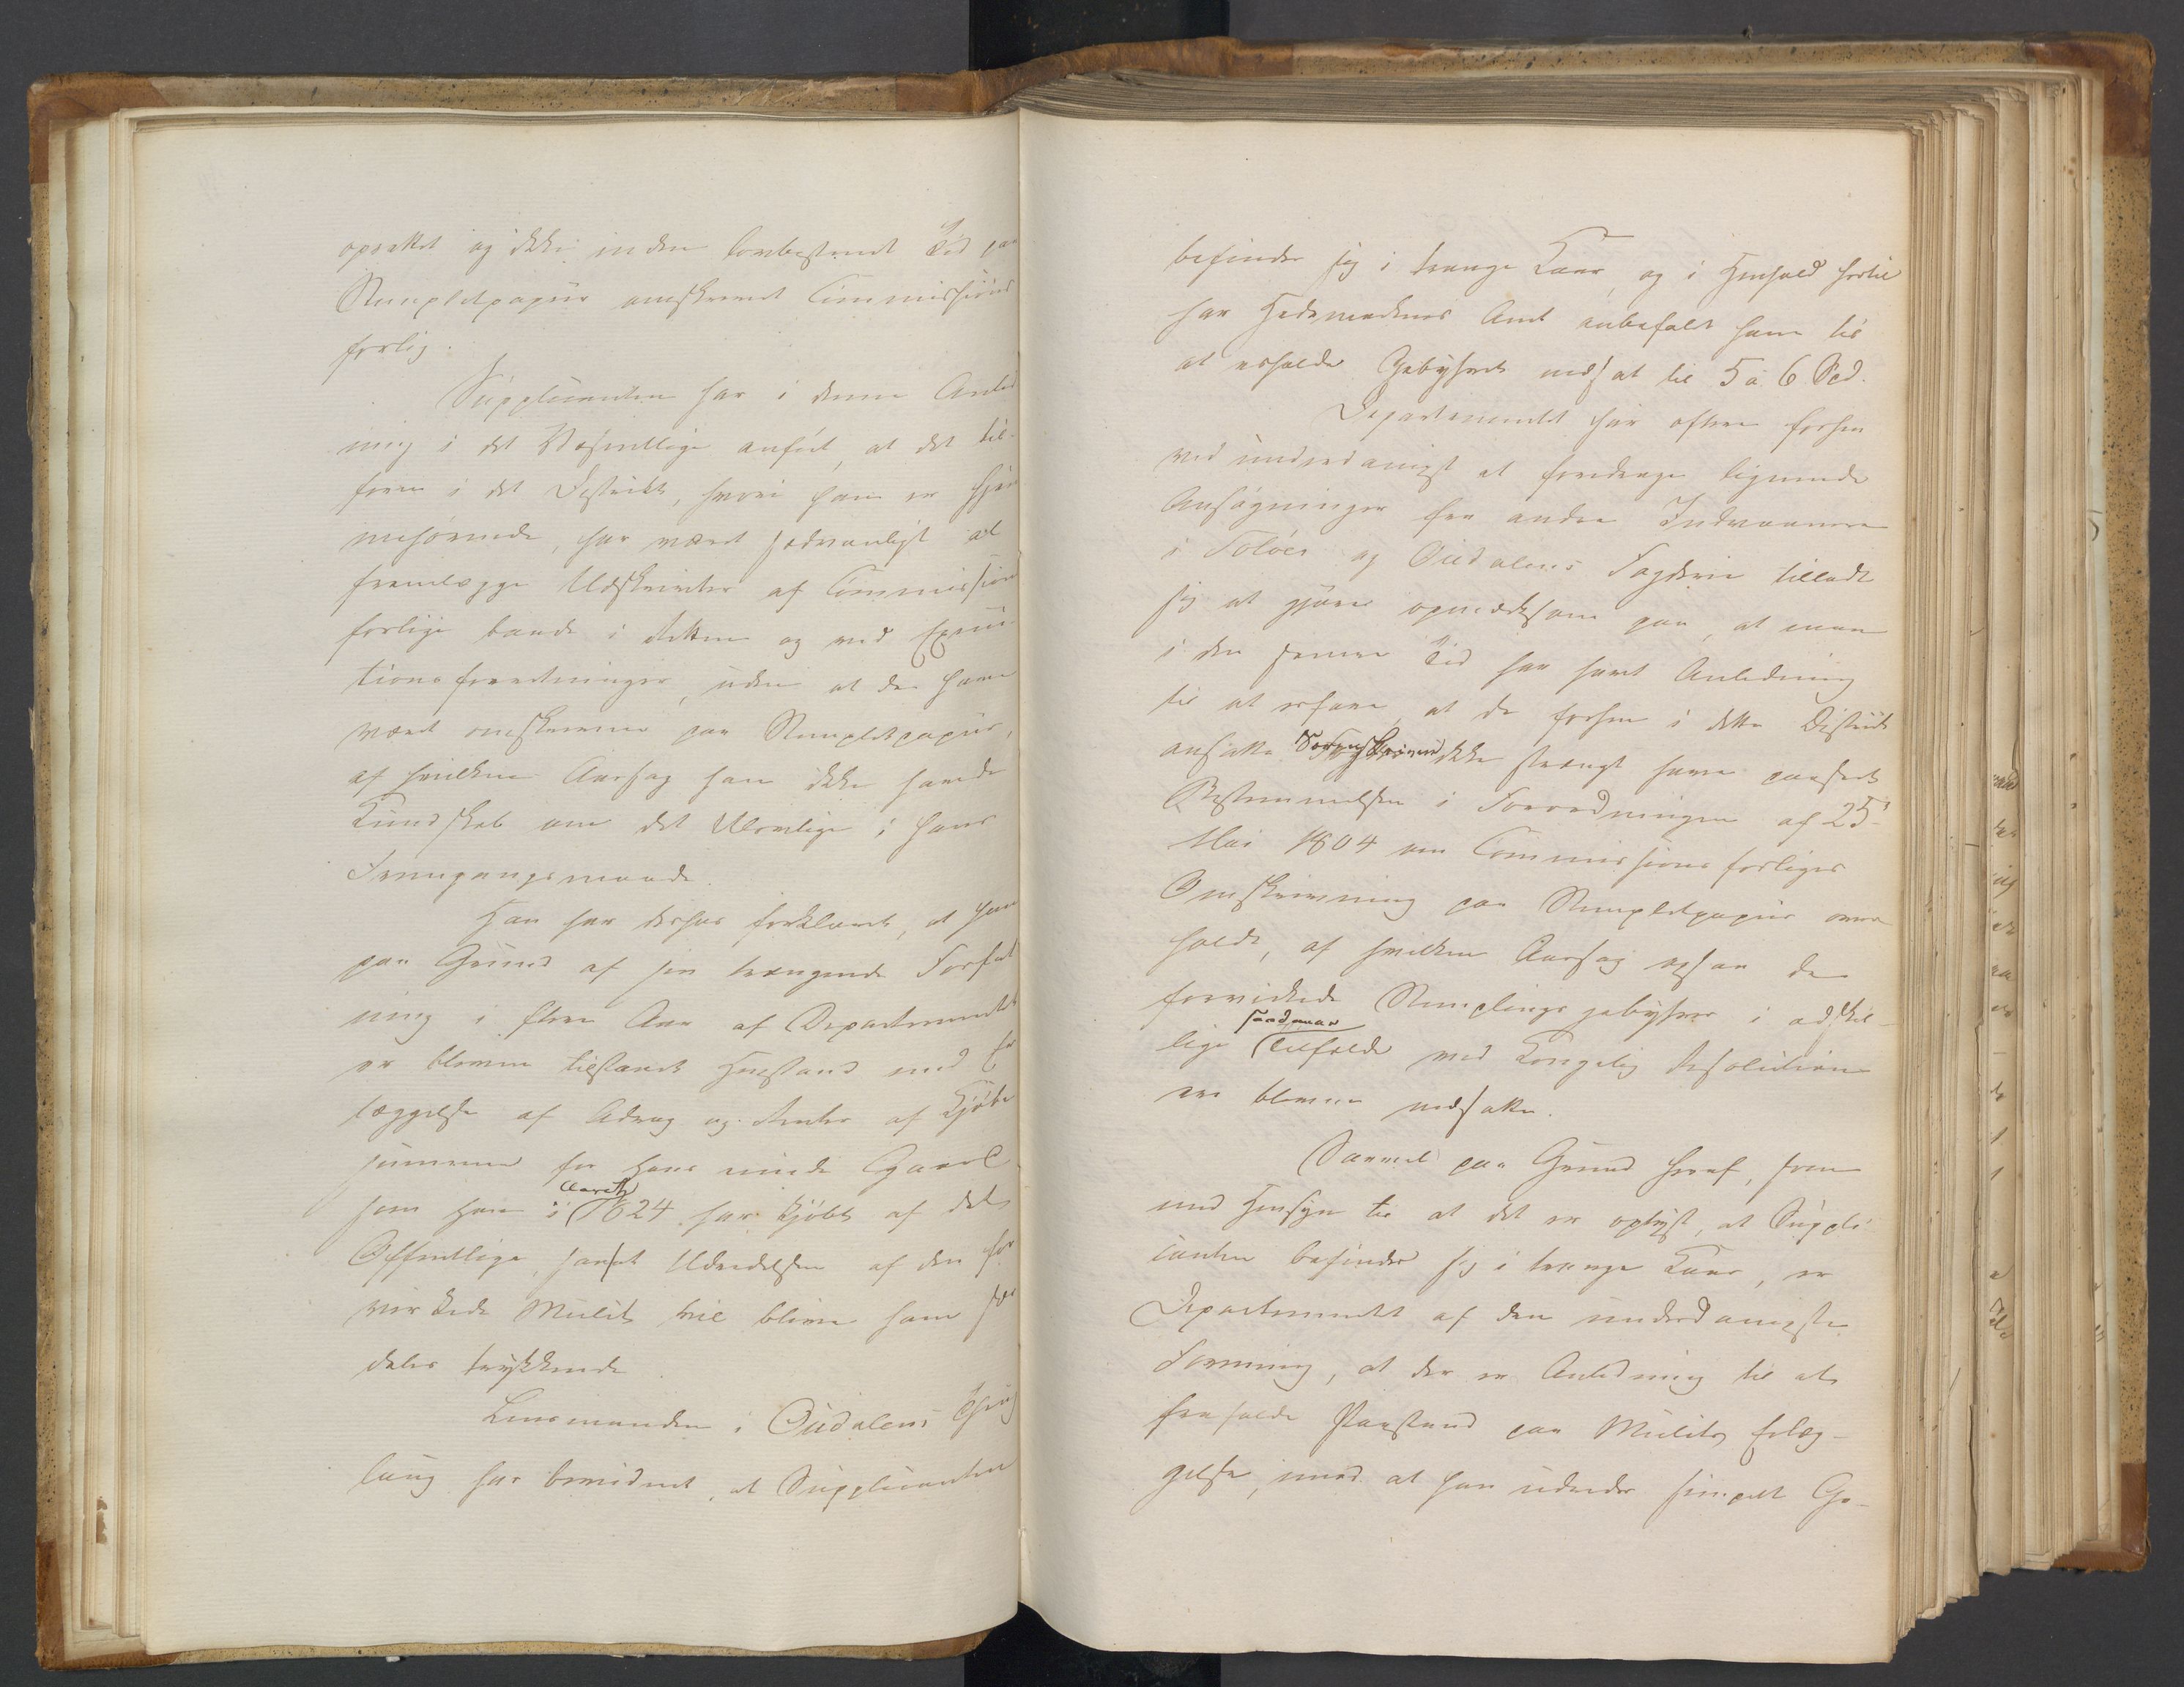 oprettet og ikke inden lovbestemt Tid paa
Stempletpapiir omskrevet Commissions
forlig.
Supplicanten har i denne Anled
ning i det Væsentlige anført, at det til-
forn i det Distrikt, hvori han er hjem
mehørende, har været sædvanligt at
fremlægge Udskrivter af Commissions
forlige baade i Retten og ved Execu-
tionsforretninger, uden at de have
været omskrevne paa Stempletpapiir,
af hvilken Aarsag han ikke havde
Kundskab om det Ulovlige i hans
Fremgangsmaade.
Han har derhos forklaret, at han
paa Grund af sin trængende Forfat
ning i flere Aar af Departementet
er bleven tilstaaet Henstand med Er
læggelse af Afdrag og Renter af Kjøbe
summen for hans iinde Gaard
som han i Aaret 1824 har kjøbt af det
Offentlige, samt at Udredelsen af den for
virkede Mulct vil blive ham sær
deles trykkende.
Lensmanden i Oudalens Thing
laug har bevidnet, at Supplicanten
befinder sig i trange Kaar, og i Henhold hertil
har Hedemarkens Amt anbefalet ham til
at erholde Gebyhret nedsat til 5 a 6 Spd.
Departementet har oftere forhen
ved underdanigst at foredrage lignende
Ansøgninger fra andre Indvaanere
i Soløer og Oudalens Fogderie tilladt
sig at gjøre opmærksom paa, at man
i den senere Tid har havt Anledning
til at erfare, at de forhen i dette Distrikt
ansatte Sorenskrivere ikke strængt have paaseet
Bestemmelsen i Forordningen af 25de
Mai 1804 om Commissionsforliges
Omskrivning paa Stempletpapiir over-
holdt, af hvilken Aarsag ogsaa de
forvirkede Stemplings gebyhrer i adskil-
lige saadanne Tilfælde ved Kongelig Resolution
ere blevne nedsatte.
Saavel paa Grund heraf, som
med Hensyn til at det er oplyst, at Suppli
canten befinder sig i trange Kaar, er
Departementet af den underdanigste
Formening, at der er Anledning til at
frafalde Paastand paa Mulctens Erlæg-
gelse, mod at han udreder simpelt Ge-